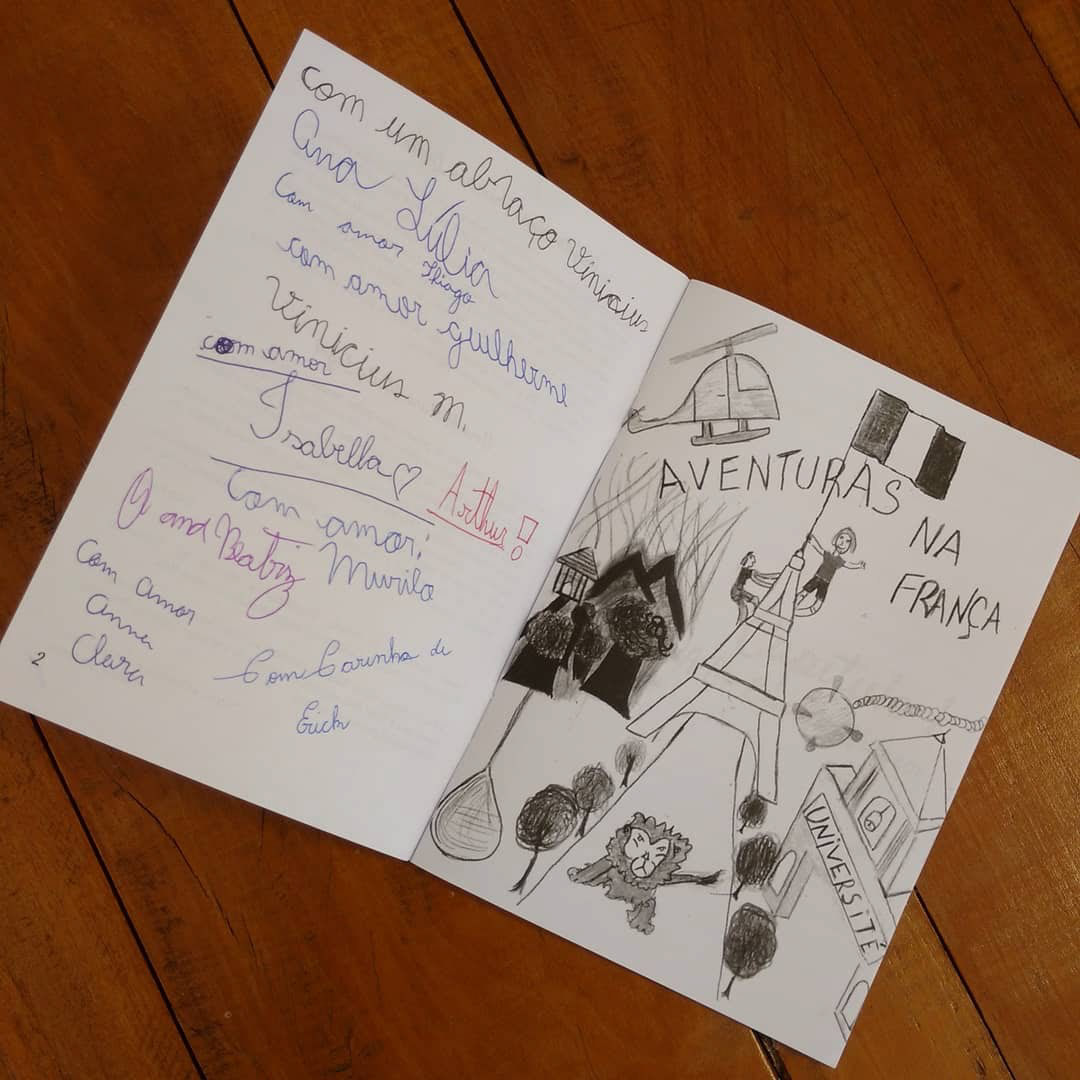 com um abraço Vinicius
Ana Lúlia
com amor
Thiago
com amor guilherme
Vinicius M.
com amor
Isabella
Arthur!
Com amor:
and Beatriz
Murilo
com amor
Anna
Clara
Com Carinho de
Erich
2
AVENTURAS
NA
FRANÇA
UNIVERSITÉ